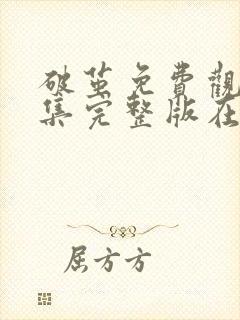 破茧免費觀
集完整版在
屈方方